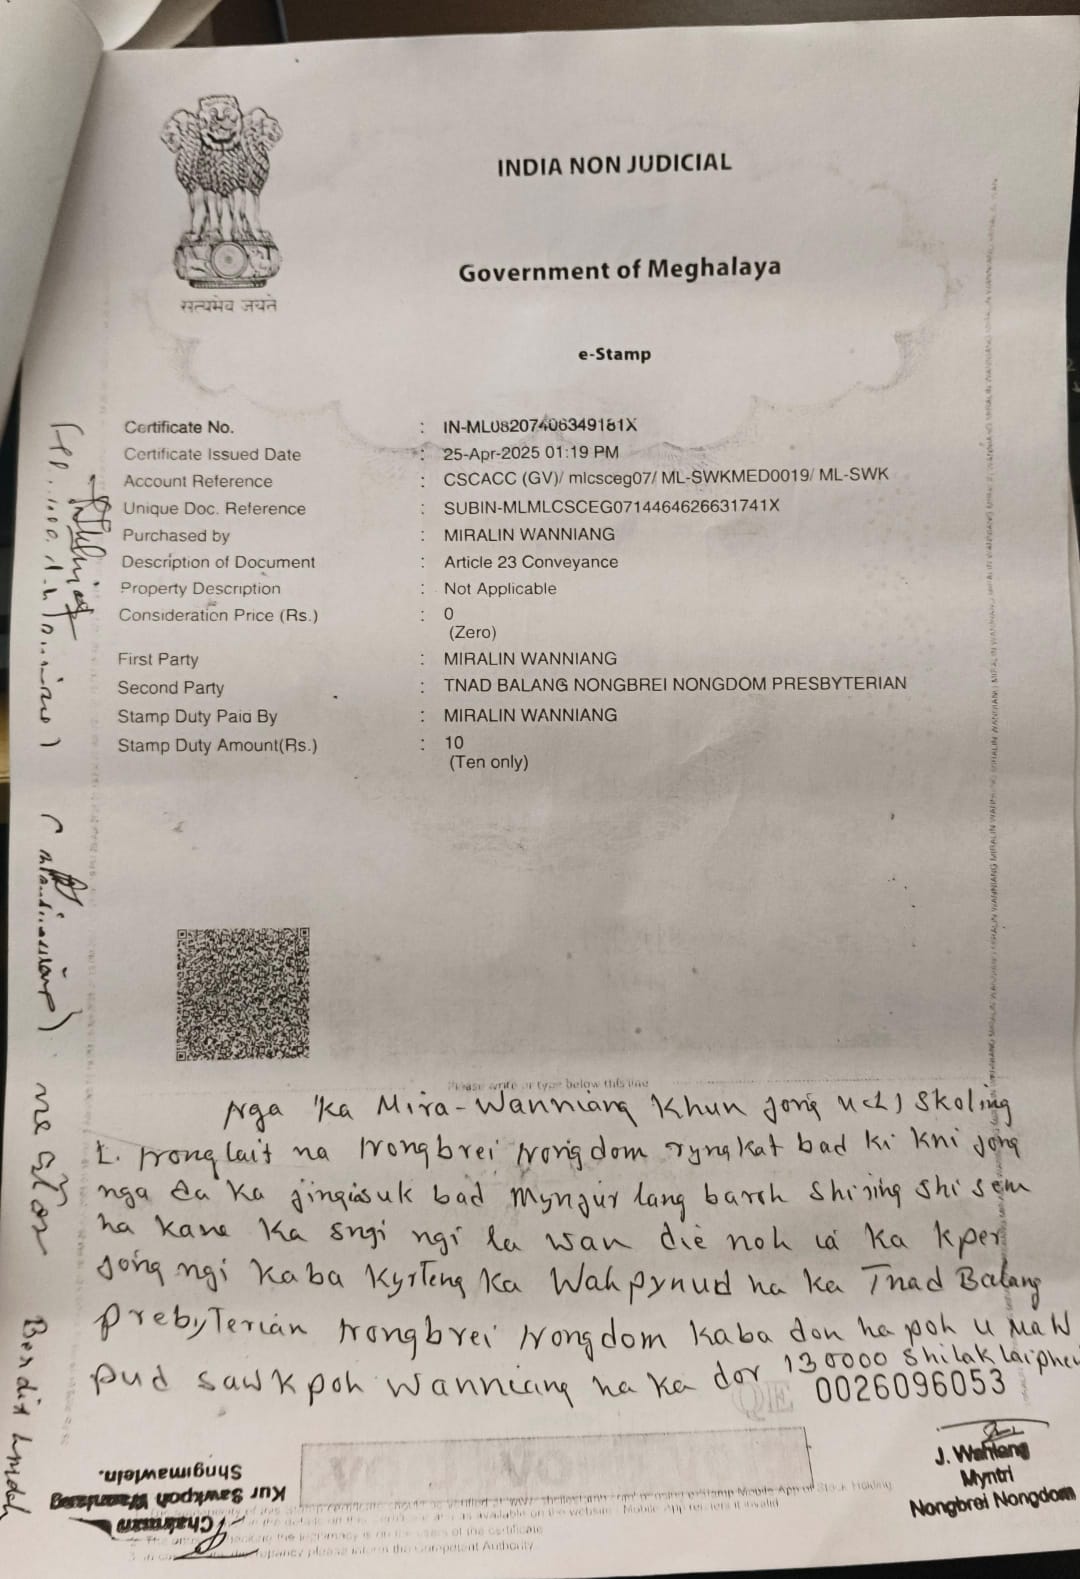 सत्यमेव जयते
INDIA NON JUDICIAL
Government of Meghalaya
e-Stamp
Certificate No. : IN-ML08207406349181X
Certificate Issued Date : 25-Apr-2025 01:19 PM
Account Reference : CSCACC (GV)/ mlcsceg07/ ML-SWKMED0019/ ML-SWK
Unique Doc. Reference : SUBIN-MLMLCSCEG0714464626631741X
Purchased by : MIRALIN WANNIANG
Description of Document : Article 23 Conveyance
Property Description : Not Applicable
Consideration Price (Rs.) : 0
(Zero)
First Party : MIRALIN WANNIANG
Second Party : TNAD BALANG NONGBREI NONGDOM PRESBYTERIAN
Stamp Duty Paid By : MIRALIN WANNIANG
Stamp Duty Amount(Rs.) : 10
(Ten only)
Please write or type below this line
Nga 'ka Mira-Wanniang Khun jong u (L) Skoling
L. Nonglait na Nongbrei Nongdom ryngkat bad ki kni jong
nga da ka jingiasuk bad mynjur lang baroh shijing shi sem
ha kane ka sngi ngi la wan die noh ia ka kper
jong ngi kaba kyrteng ka Wahpynud ha ka Tnad Balang
Prebyterian Nongbrei Nongdom kaba don ha poh u maw
pud sawkpoh wanniang ha ka dor 130000 shilak laiphew
0026096053
J. Wahlang
Myntri
Nongbrei Nongdom
Chairman
Kur Sawkpoh Wanniang
Shngimawlein.